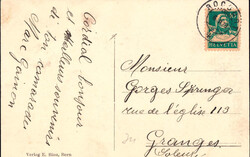 Cordial bonjour
et meilleurs souvenirs
de ton camarade
Marc
Monsieur
Georges
rue de l'église 113
Granges
(Soleure)
HELVETIA
Verlag E. Bern